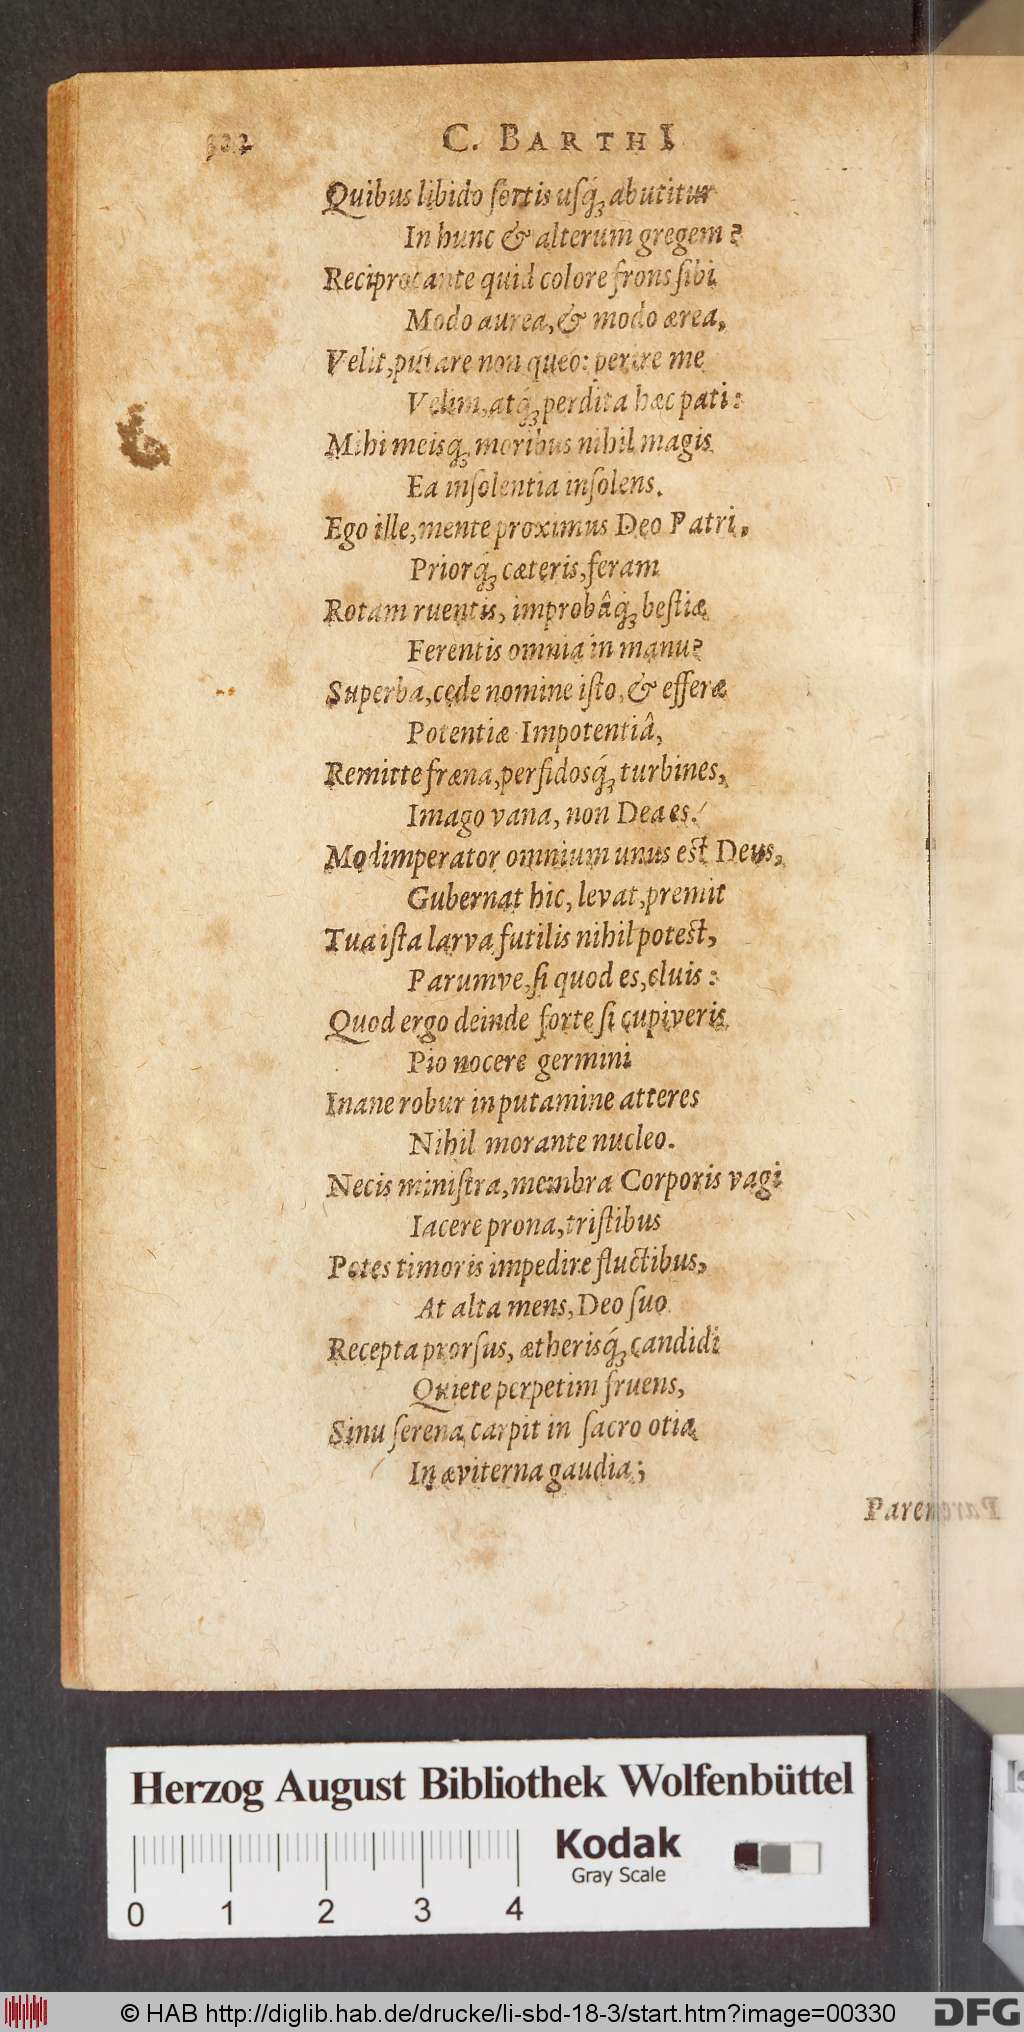 322 C. BARTHI
Quibus libido sortis usq́ꝫ abutitur
In hunc & alterum gregem?
Reciprocante quid colore frons sibi
Modo aurea, & modo ærea,
Velit, putare non queo: perire me
Velim, atq́ꝫ perdita hæc pati:
Mihi meisq́ꝫ moribus nihil magis
Ea insolentia insolens.
Ego ille, mente proximus Deo Patri,
Priorq́ꝫ cæteris, feram
Rotam ruentis, improbâq́ꝫ bestiæ
Ferentis omnia in manu?
Superba, cede nomine isto, & efferæ
Potentiæ Impotentiâ,
Remitte fræna, perfidosq́ꝫ turbines,
Imago vana, non Dea es!
Modimperator omnium unus est Deus,
Gubernat hic, levat, premit
Tua ista larva futilis nihil potest,
Parumve, si quod es, cluis:
Quod ergo deinde forte si cupiveris
Pio nocere germini
Inane robur in putamine atteres
Nihil morante nucleo.
Necis ministra, membra Corporis vagi
Iacere prona, tristibus
Potes timoris impedire fluctibus,
At alta mens, Deo suo
Recepta prorsus, ætherisq́ꝫ candidi
Quiete perpetim fruens,
Sinu serena carpit in sacro otia
In æviterna gaudia;
Paren
Herzog August Bibliothek Wolfenbüttel
Kodak
Gray Scale
0 1 2 3 4
© HAB http://diglib.hab.de/drucke/li-sbd-18-3/start.htm?image=00330
DFG